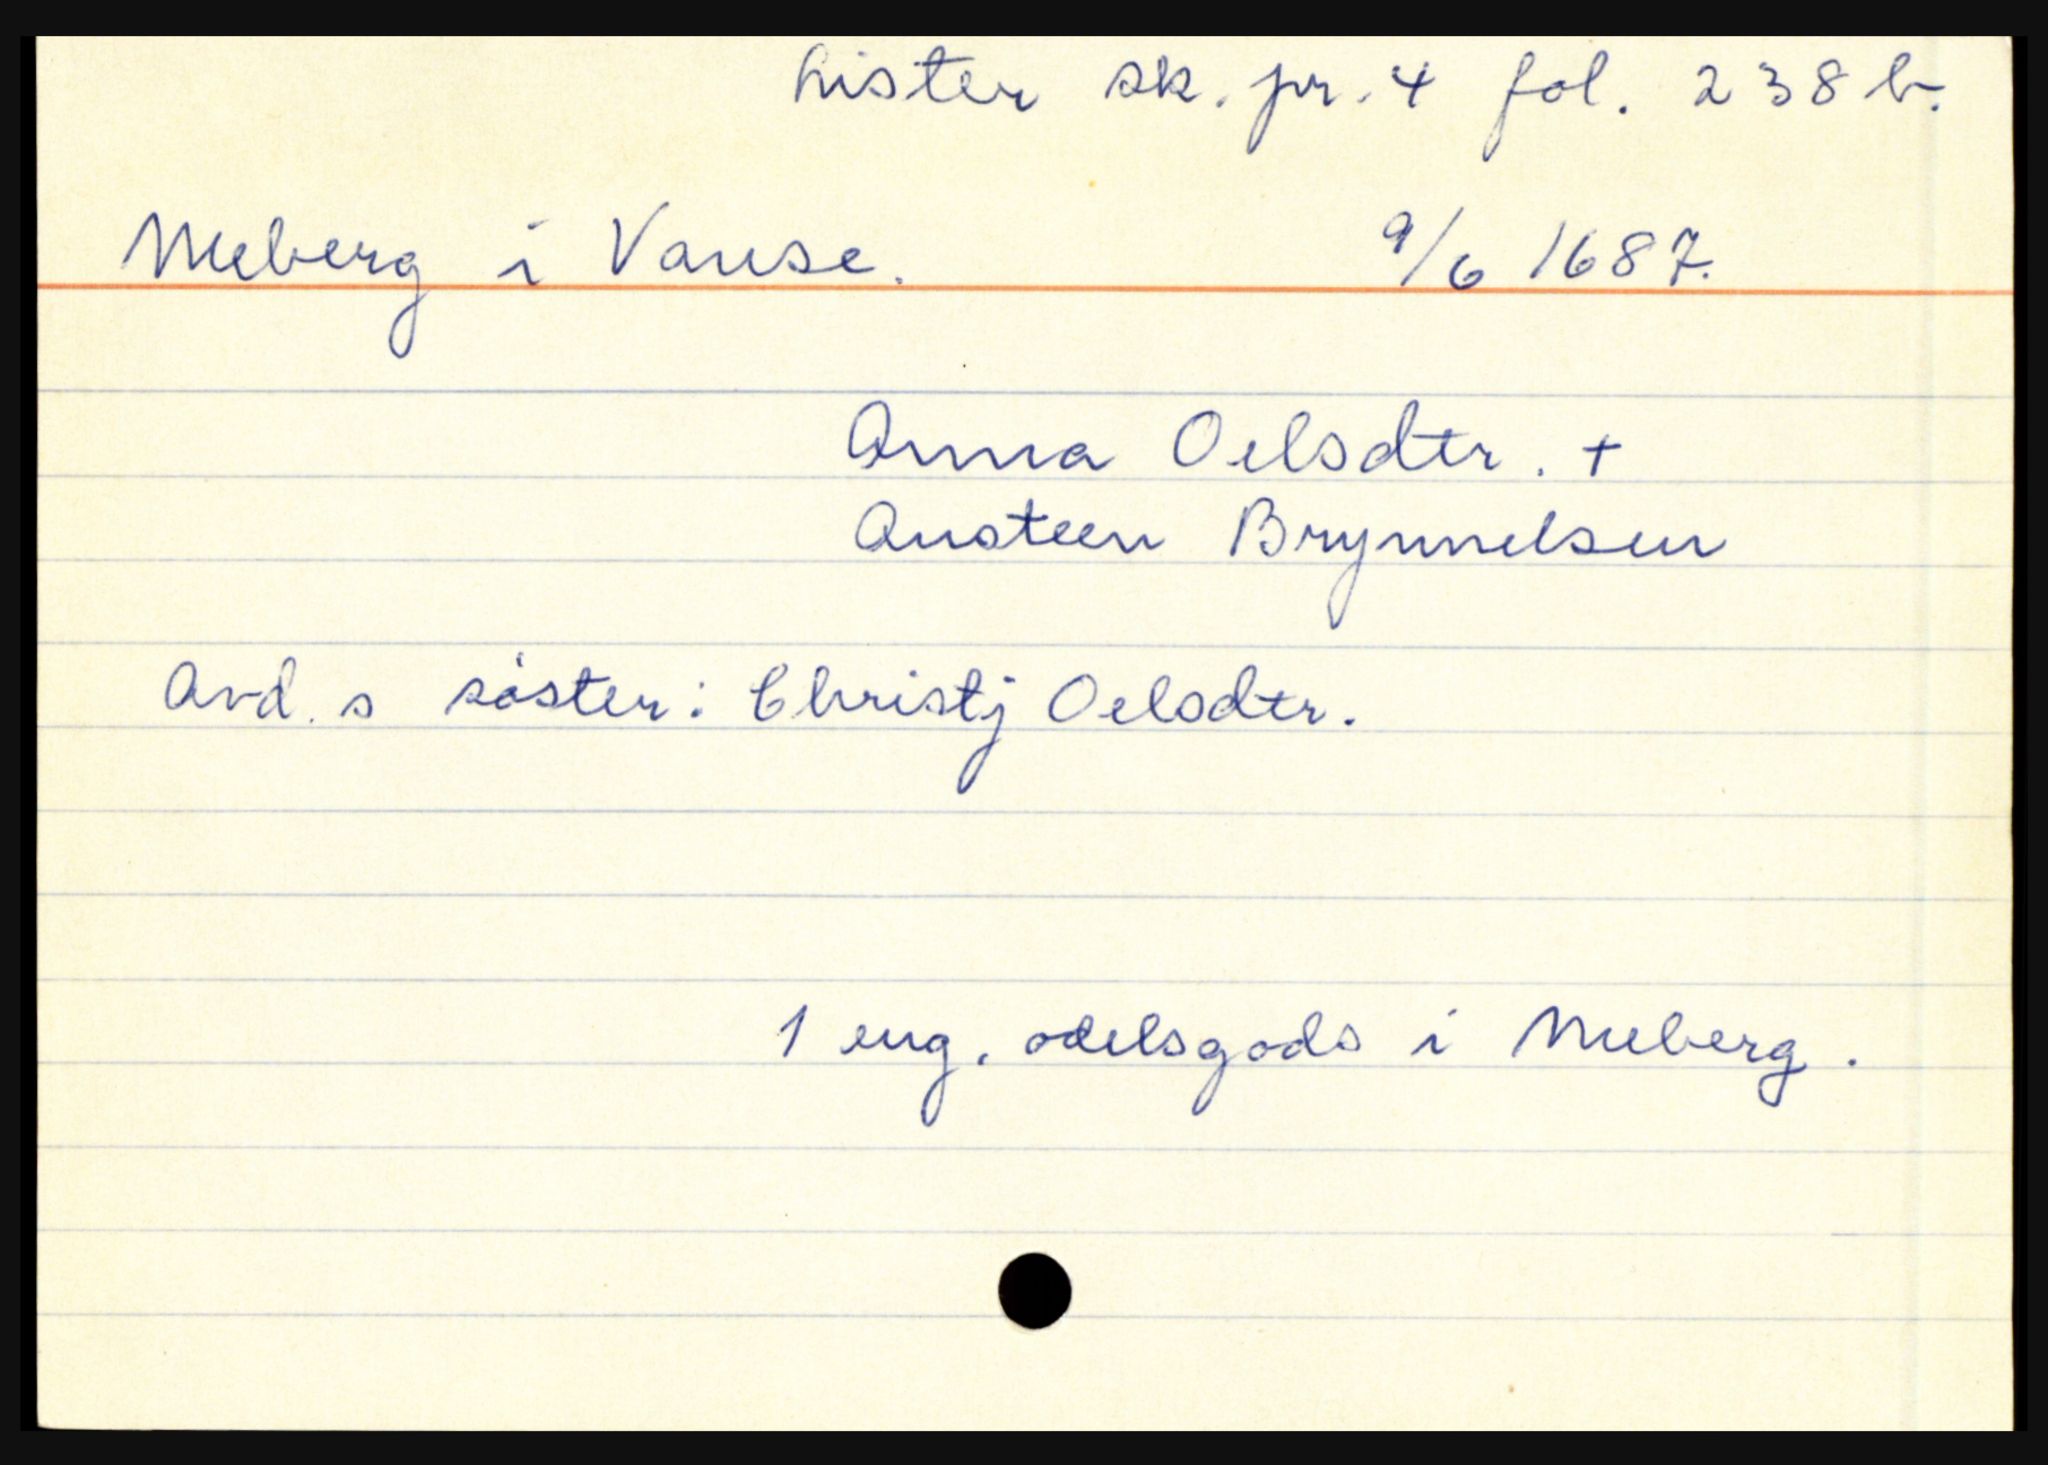 Lister sk. pr. 4 fol. 238 b.
Meberg i Vanse. 9/6 1687.
Anna Oelsdtr. +
Austeen Brynnelsen
Avd. s søster: Christj Oelsdtr.
1 eng. odelsgods i Meberg.